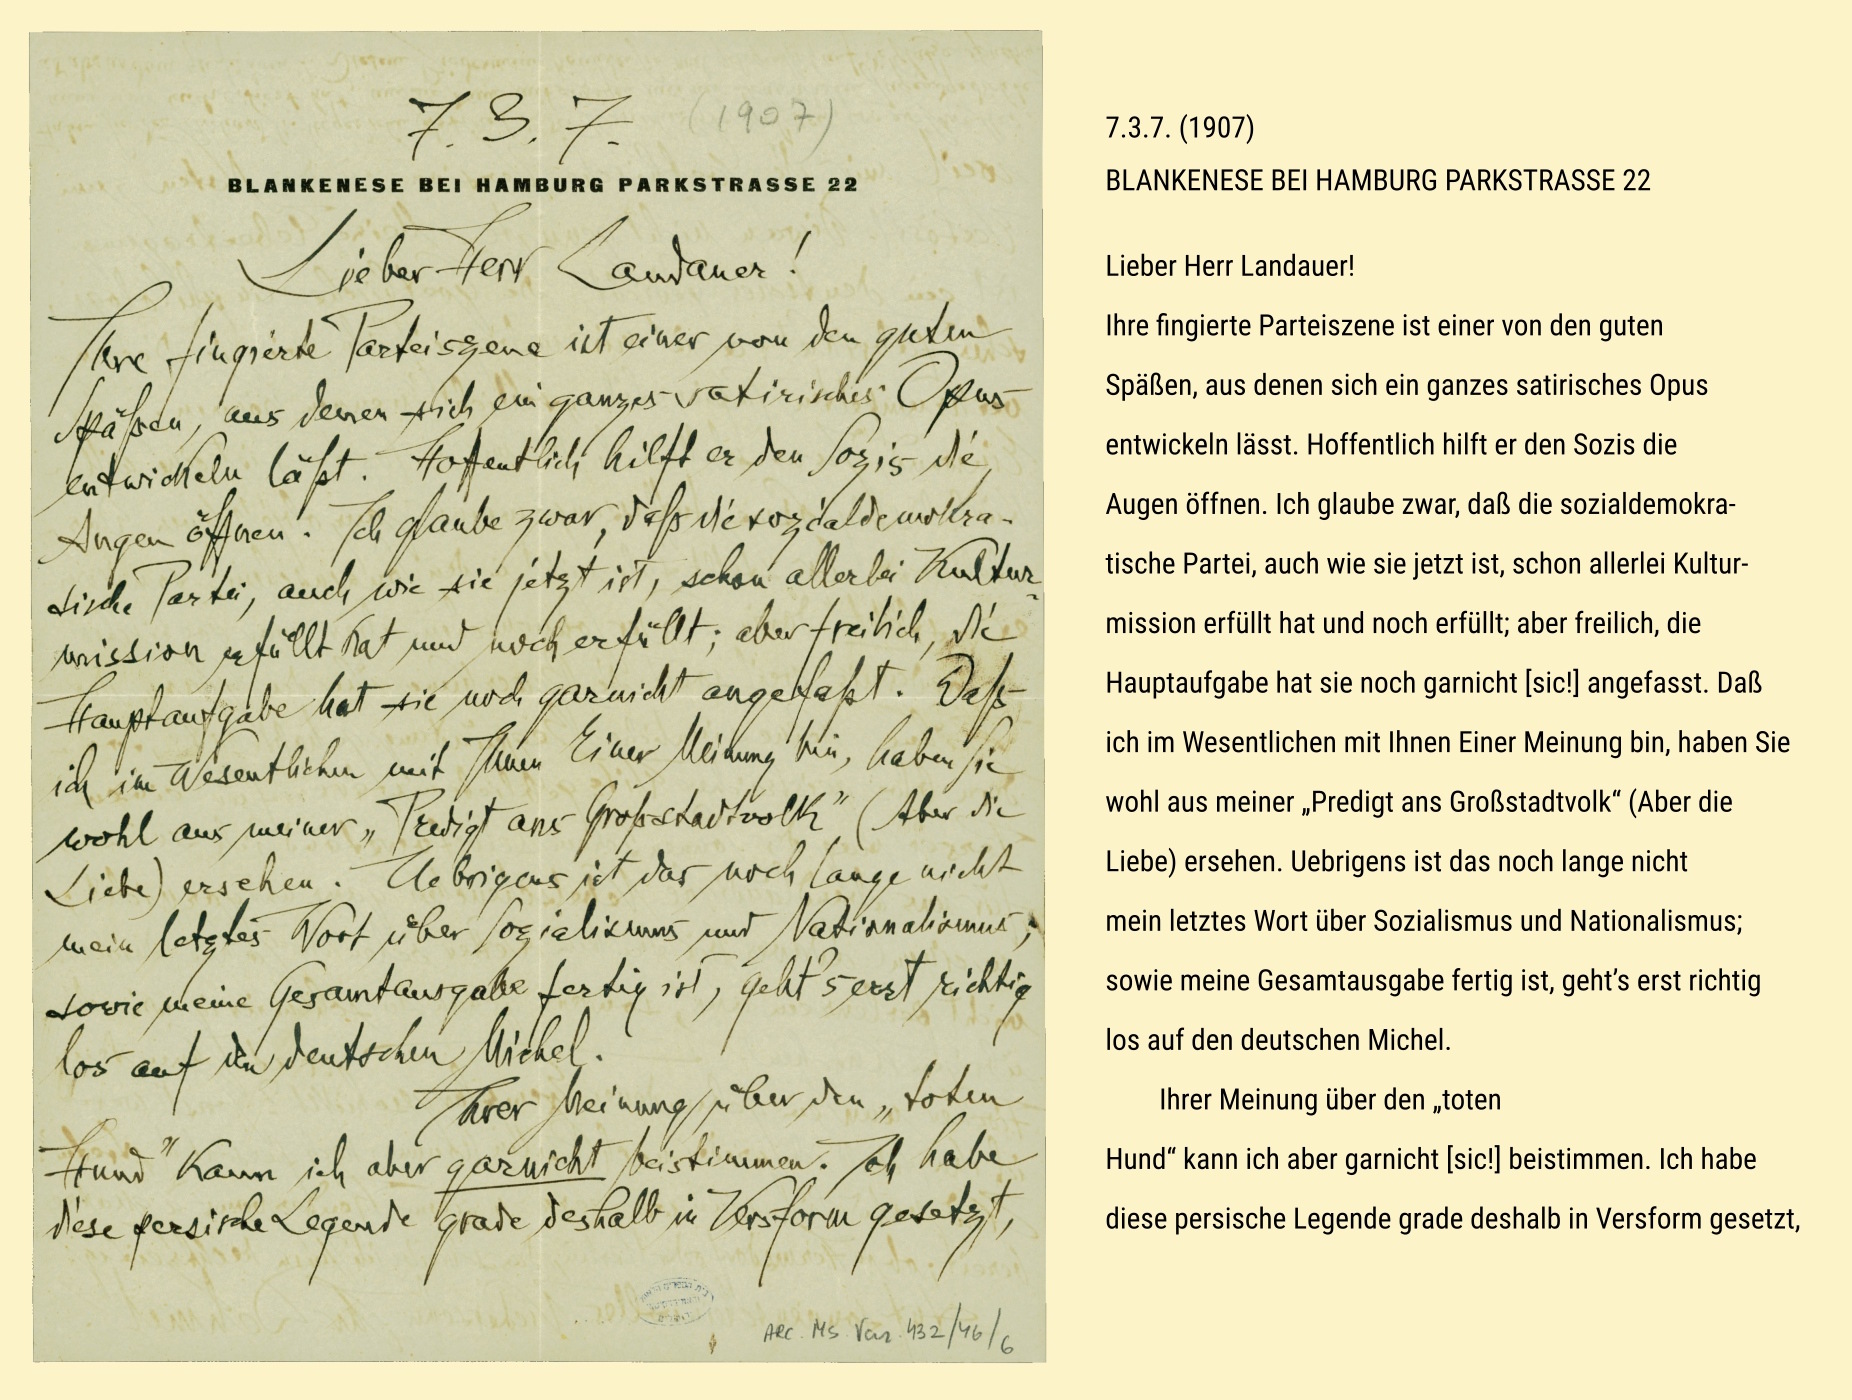 7. 3. 7. (1907)
BLANKENESE BEI HAMBURG PARKSTRASSE 22
Lieber Herr Landauer!
Ihre fingierte Parteiszene ist einer von den guten
Späßen, aus denen sich ein ganzes satirisches Opus
entwickeln läßt. Hoffentlich hilft er den Sozis die
Augen öffnen. Ich glaube zwar, daß die sozialdemokra-
tische Partei, auch wie sie jetzt ist, schon allerlei Kultur-
mission erfüllt hat und noch erfüllt; aber freilich, die
Hauptaufgabe hat sie noch garnicht angefaßt. Daß
ich im Wesentlichen mit Ihnen Einer Meinung bin, haben Sie
wohl aus meiner „Predigt ans Großstadtvolk" (Aber die
Liebe) ersehen. Uebrigens ist das noch lange nicht
mein letztes Wort über Sozialismus und Nationalismus;
sowie meine Gesamtausgabe fertig ist, geht's erst richtig
los auf den deutschen Michel.
Ihrer Meinung über den „toten
Hund" kann ich aber garnicht beistimmen. Ich habe
diese persische Legende grade deshalb in Versform gesetzt,
ARC. MS. Var. 432/46/6
7.3.7. (1907)
BLANKENESE BEI HAMBURG PARKSTRASSE 22
Lieber Herr Landauer!
Ihre fingierte Parteiszene ist einer von den guten
Späßen, aus denen sich ein ganzes satirisches Opus
entwickeln lässt. Hoffentlich hilft er den Sozis die
Augen öffnen. Ich glaube zwar, daß die sozialdemokra-
tische Partei, auch wie sie jetzt ist, schon allerlei Kultur-
mission erfüllt hat und noch erfüllt; aber freilich, die
Hauptaufgabe hat sie noch garnicht [sic!] angefasst. Daß
ich im Wesentlichen mit Ihnen Einer Meinung bin, haben Sie
wohl aus meiner „Predigt ans Großstadtvolk“ (Aber die
Liebe) ersehen. Uebrigens ist das noch lange nicht
mein letztes Wort über Sozialismus und Nationalismus;
sowie meine Gesamtausgabe fertig ist, geht’s erst richtig
los auf den deutschen Michel.
Ihrer Meinung über den „toten
Hund“ kann ich aber garnicht [sic!] beistimmen. Ich habe
diese persische Legende grade deshalb in Versform gesetzt,